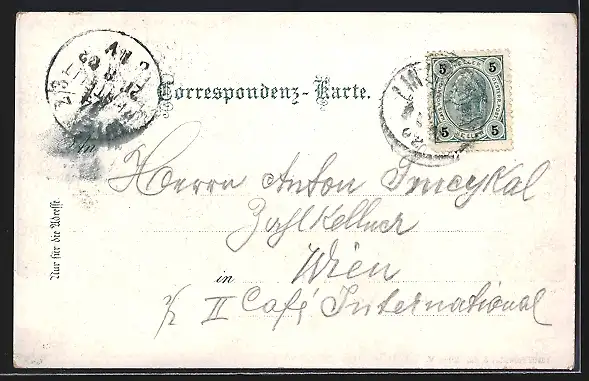 Correspondenz-Karte.
5 5
5 5
Herrn Anton Smeykal
Zahlkellner
in Wien
II Café International
Nur für die Adresse